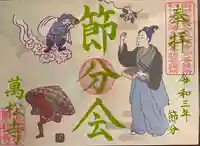 奉拝
令和三年
節分
節分会
萬松寺